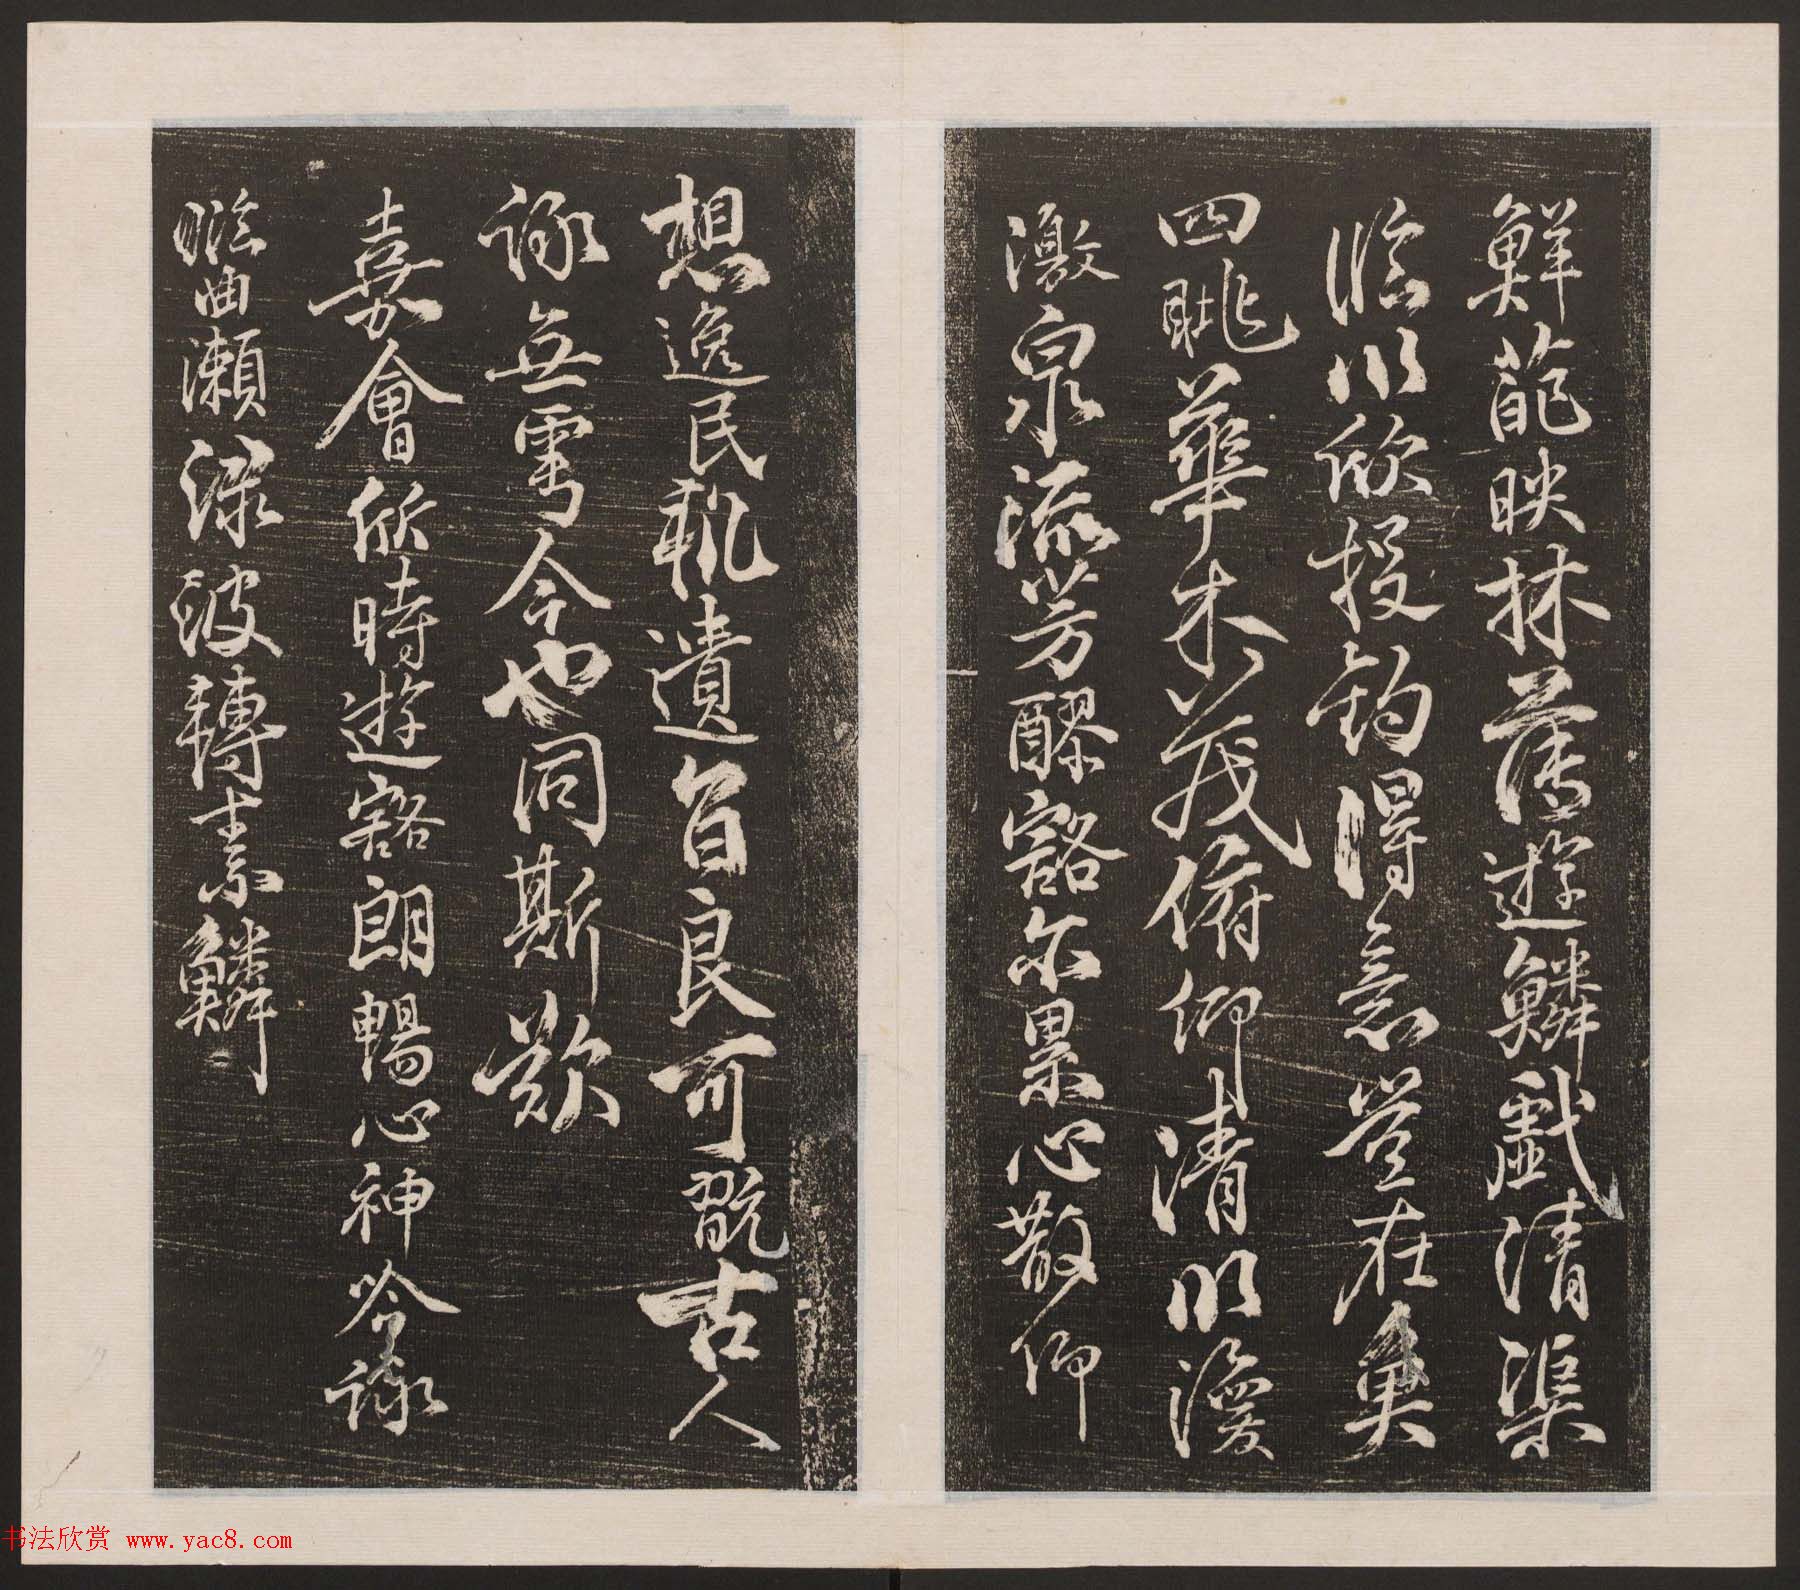 鮮葩映林薄遊鱗戲清渠
臨川欣投釣得意豈在魚
四眺華木茂俯仰清川渙
激泉流芳醪豁尓累心散仰
想逸民軌遺音良可翫古人
詠舞雩今也同斯歎
嘉會欣時遊豁朗暢心神吟詠
曲瀨淥波轉素鱗
书法欣赏 www.yac8.com